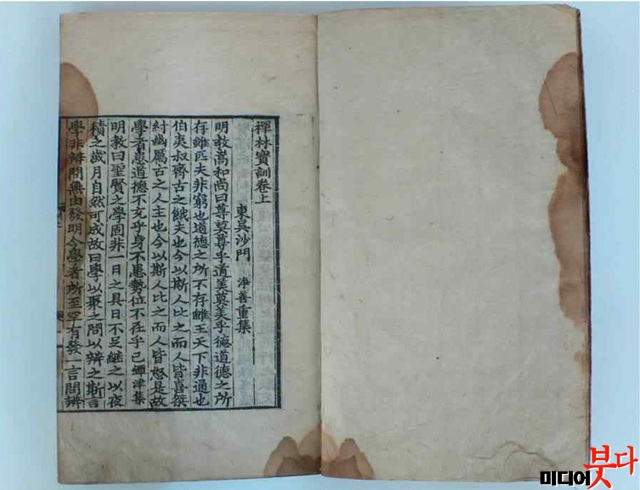 禪林寶訓卷上
東吳沙門 淨善重集
明教嵩和尚曰尊莫尊乎道美莫美乎德道德之所
存雖匹夫非窮也道德之所不存雖王天下非通也
伯夷叔齊古之餓夫也今以斯人比之而人皆喜桀
紂幽厲古之人主也今以斯人比之而人皆怒是故
學者患道德不充乎身不患勢位不在乎己鐔津集
明教曰聖賢之學固非一日之具日不足繼之以夜
積之歲月自然可成故曰學以聚之問以辨之斯言
學非辨問無由發明今學者所至罕有發一言問辨
미디어붓다